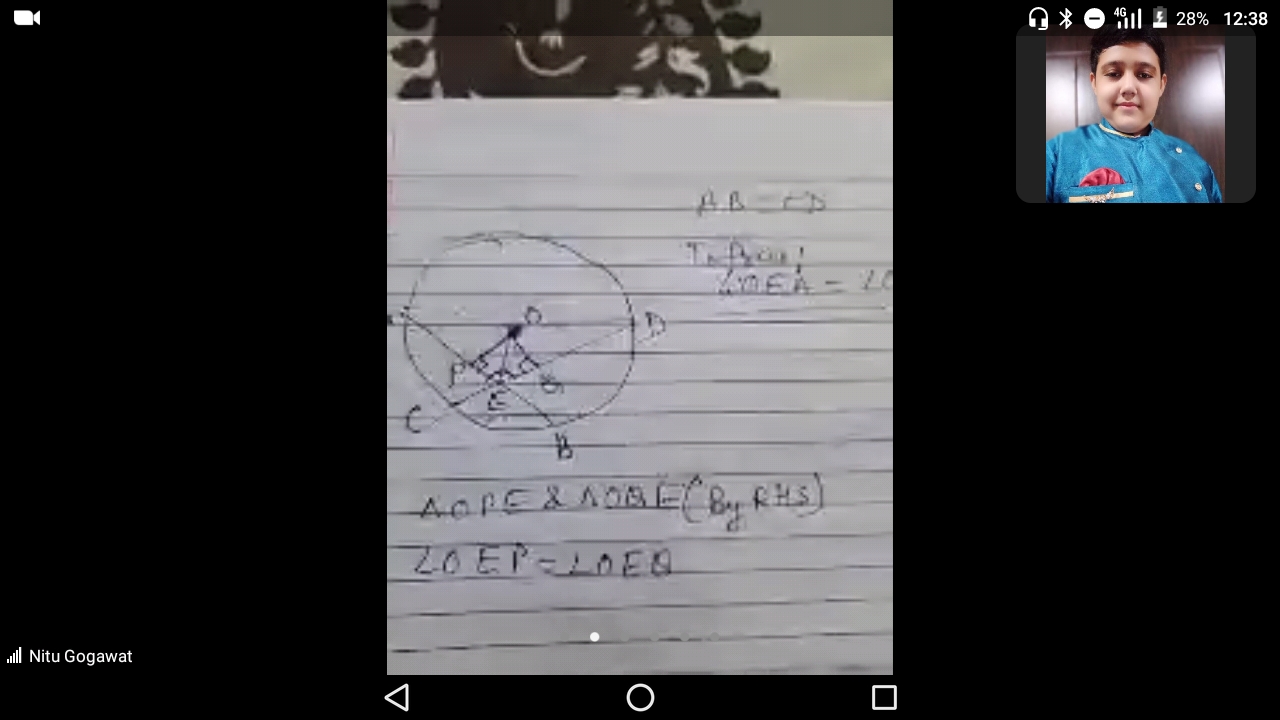 4G 28% 12:38
AB = CD
∠OEA =
O
D
P
Q
E
C
B
△OPE & △OQE (By RHS)
∠OEP = ∠OEQ
Nitu Gogawat